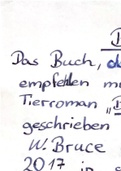 Das Buch, d
empfehlen m
Tierroman „B
geschrieben
W. Bruce
2017 in